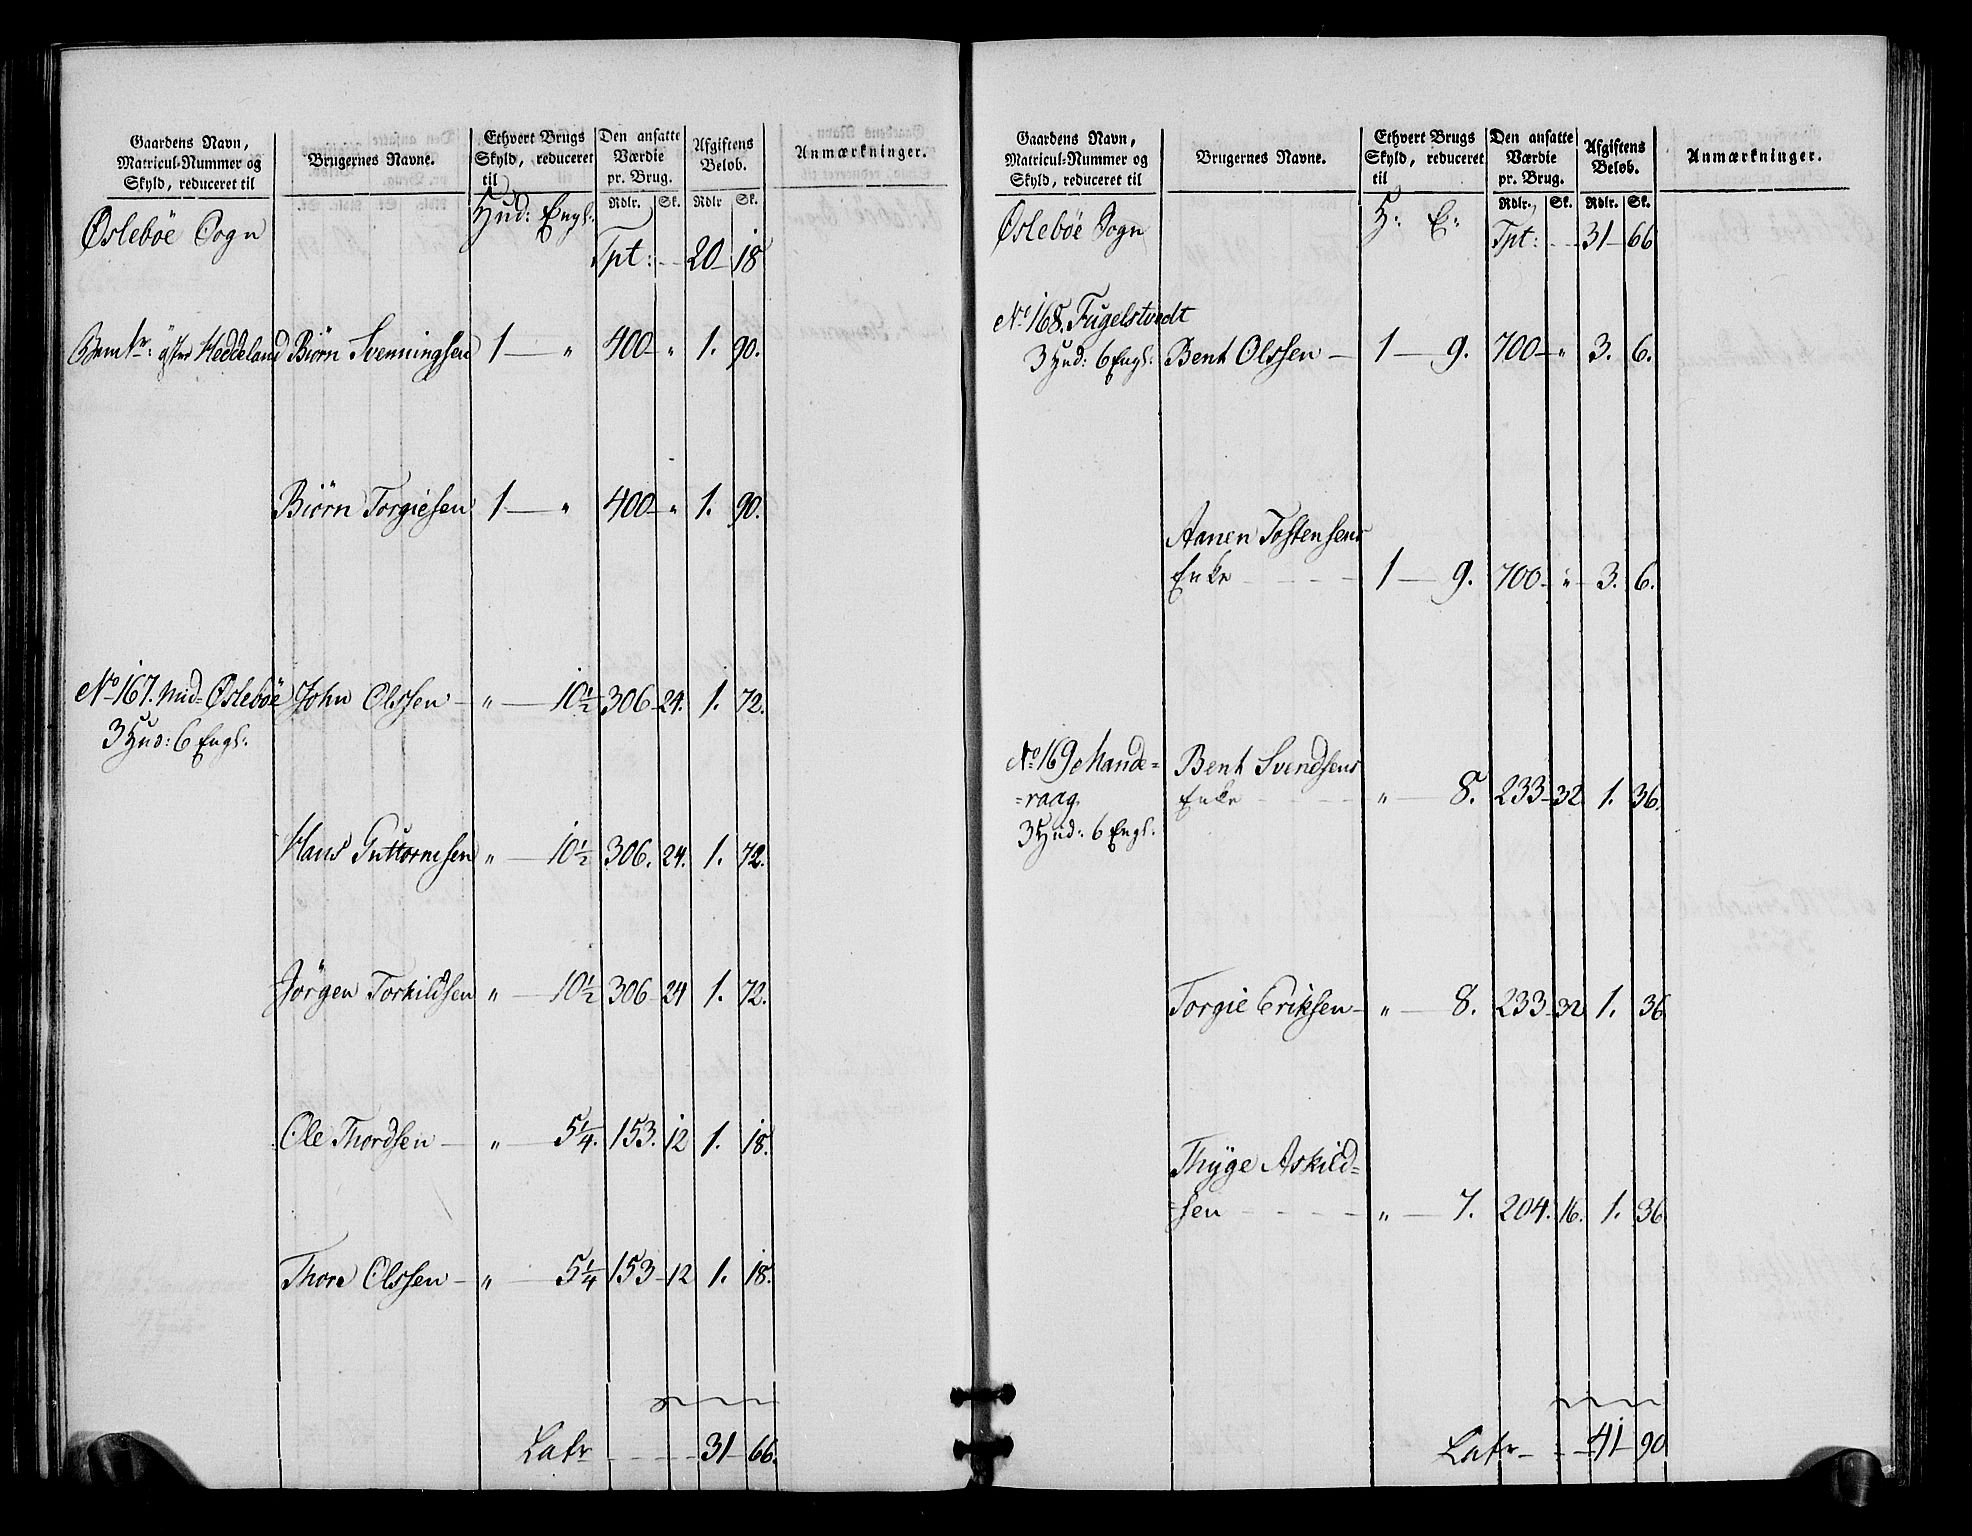 Gaardens Navn,
Matricul-Nummer og
Skyld, reduceret til
Brugernes Navne.
Ethvert Brugs
Skyld, reduceret
til
Den ansatte
Værdie
pr. Brug.
Afgiftens
Beløb.
Anmærkninger.
Rdlr. Sk. Rdlr Sk.
Øslebøe Sogn Hud: Engl:
Tpt: 20 18
øster Heddeland Biørn Svenningsen 1 — " 400 — " 1. 90.
Biørn Torgiesen 1 — " 400 — " 1. 90.
No 167. Mid-Øslebøe John Olssen — " — 10½ 306 — 24. 1. 72.
3 Hud: 6 Engl:
Hans Guttormsen " — 10½ 306. 24. 1. 72.
Jörgen Torkildsen " — 10½ 306 — 24 1. 72.
Ole Thordsen — " — 5¼. 153. 12 1. 18.
Thore Olssen — " — 5¼ 153 — 12 1. 18.
Latr 31 — 66.
Gaardens Navn,
Matricul-Nummer og
Skyld, reduceret til
Brugernes Navne.
Ethvert Brugs
Skyld, reduceret
til
Den ansatte
Værdie
pr. Brug.
Afgiftens
Beløb.
Anmærkninger.
Rdlr. Sk. Rdlr. Sk.
Øslebøe Sogn H: E:
Tpt: 31 — 66
No 168. Fugelstvedt
3 Hud: 6 Engl: Bent Olssen — 1 — 9. 700 — " 3. 6.
Aanen Tostensens
Enke 1 — 9. 700 — " 3. 6.
No 169 Mande=
=raag. Bent Svendsens
3 Hud: 6 Engl: Enke " — 8. 233 — 32 1. 36.
Torgie Eriksen — " — 8. 233 — 32 1. 36
Thÿge Askild=
=sen " — 7. 204. 16. 1. 36
Latr 41 — 90